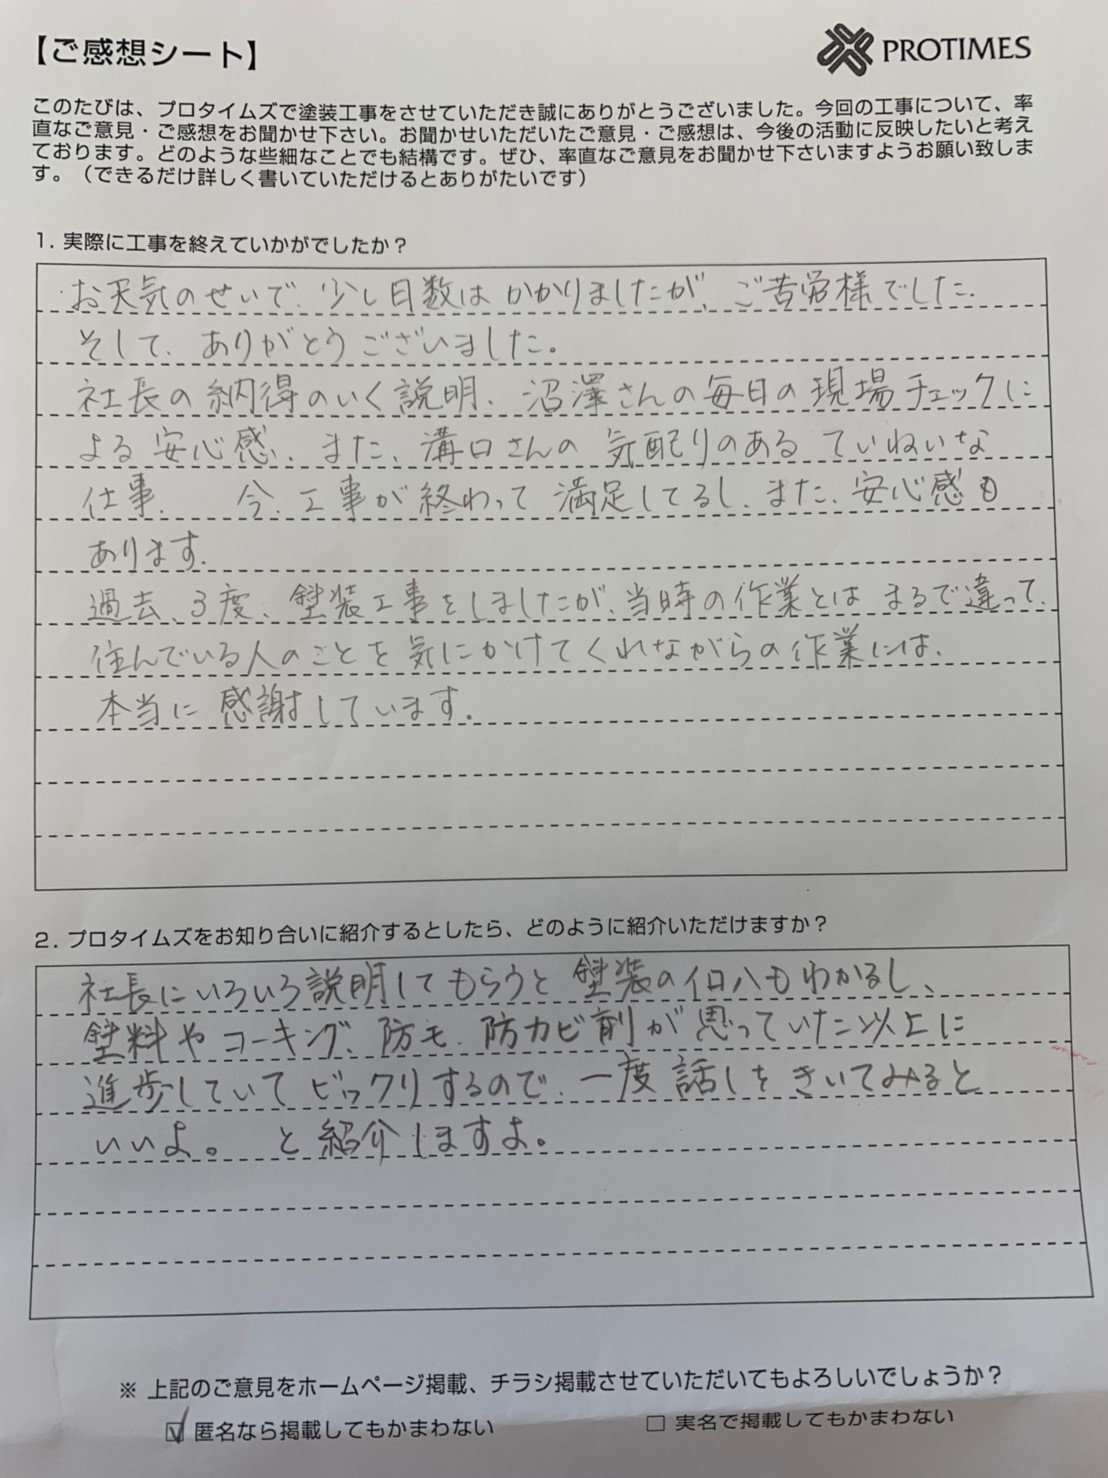 【ご感想シート】
PROTIMES
このたびは、プロタイムズで塗装工事をさせていただき誠にありがとうございました。今回の工事について、率
直なご意見・ご感想をお聞かせ下さい。お聞かせいただいたご意見・ご感想は、今後の活動に反映したいと考え
ております。どのような些細なことでも結構です。ぜひ、率直なご意見をお聞かせ下さいますようお願い致しま
す。（できるだけ詳しく書いていただけるとありがたいです）
1. 実際に工事を終えていかがでしたか？
お天気のせいで、少し日数はかかりましたが、ご苦労様でした。
そして、ありがとうございました。
社長の納得のいく説明、沼澤さんの毎日の現場チェックに
よる安心感、また、溝口さんの気配りのあるていねいな
仕事、 今、工事が終わって満足してるし、また、安心感も
あります。
過去、3度、塗装工事をしましたが、当時の作業とはまるで違って、
住んでいる人のことを気にかけてくれながらの作業には、
本当に感謝しています。
2. プロタイムズをお知り合いに紹介するとしたら、どのように紹介いただけますか？
社長にいろいろ説明してもらうと塗装のイロハもわかるし、
塗料やコーキング、防モ、防カビ剤が思っていた以上に
進歩していてビックリするので、一度話しをきいてみると
いいよ。 と紹介しますよ。
※ 上記のご意見をホームページ掲載、チラシ掲載させていただいてもよろしいでしょうか？
☑ 匿名なら掲載してもかまわない □ 実名で掲載してもかまわない